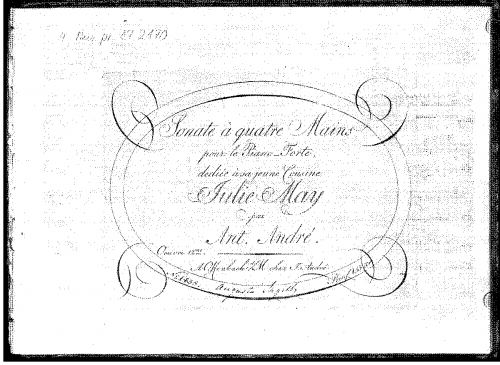 4 Mus. pr. 87.2170
Sonate à quatre Mains
pour le Piano-Forte,
dediée à sa jeune Cousine
Julie May
par
Ant. André.
Oeuvre 12me
A Offenbach s/M chez J. André